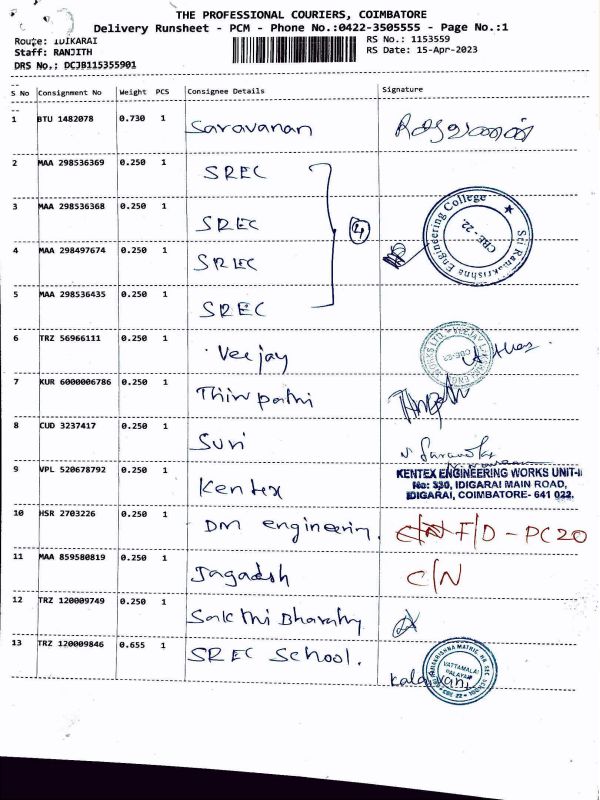 THE PROFESSIONAL COURIERS, COIMBATORE
Delivery Runsheet - PCM - Phone No.:0422-3505555 - Page No.:1
Route: IDIKARAI
RS No.: 1153559
Staff: RANJITH
RS Date: 15-Apr-2023
DRS No.: DCJB115355901
S No Consignment No Weight PCS Consignee Details Signature
1 BTU 1482078 0.730 1 Saravanan
2 MAA 298536369 0.250 1 SREC
3 MAA 298536368 0.250 1 SREC
4 MAA 298497674 0.250 1 SREC
4
Sri Ramakrishna Engineering College
CBE - 22.
5 MAA 298536435 0.250 1 SREC
6 TRZ 56966111 0.250 1 Veejay
7 KUR 6000006786 0.250 1 Thirupathi
8 CUD 3237417 0.250 1 Suri
9 VPL 520678792 0.250 1 Kentex
KENTEX ENGINEERING WORKS UNIT-I
No: 330, IDIGARAI MAIN ROAD,
IDIGARAI, COIMBATORE- 641 022.
10 HSR 2703226 0.250 1 DM engineering. C/N F/D - PC20
11 MAA 859580819 0.250 1 Jagadsh C/N
12 TRZ 120009749 0.250 1 Sakthi Bharathy
13 TRZ 120009846 0.655 1 SREC School.
VATTAMALAI
PALAYAM
Kalaivani